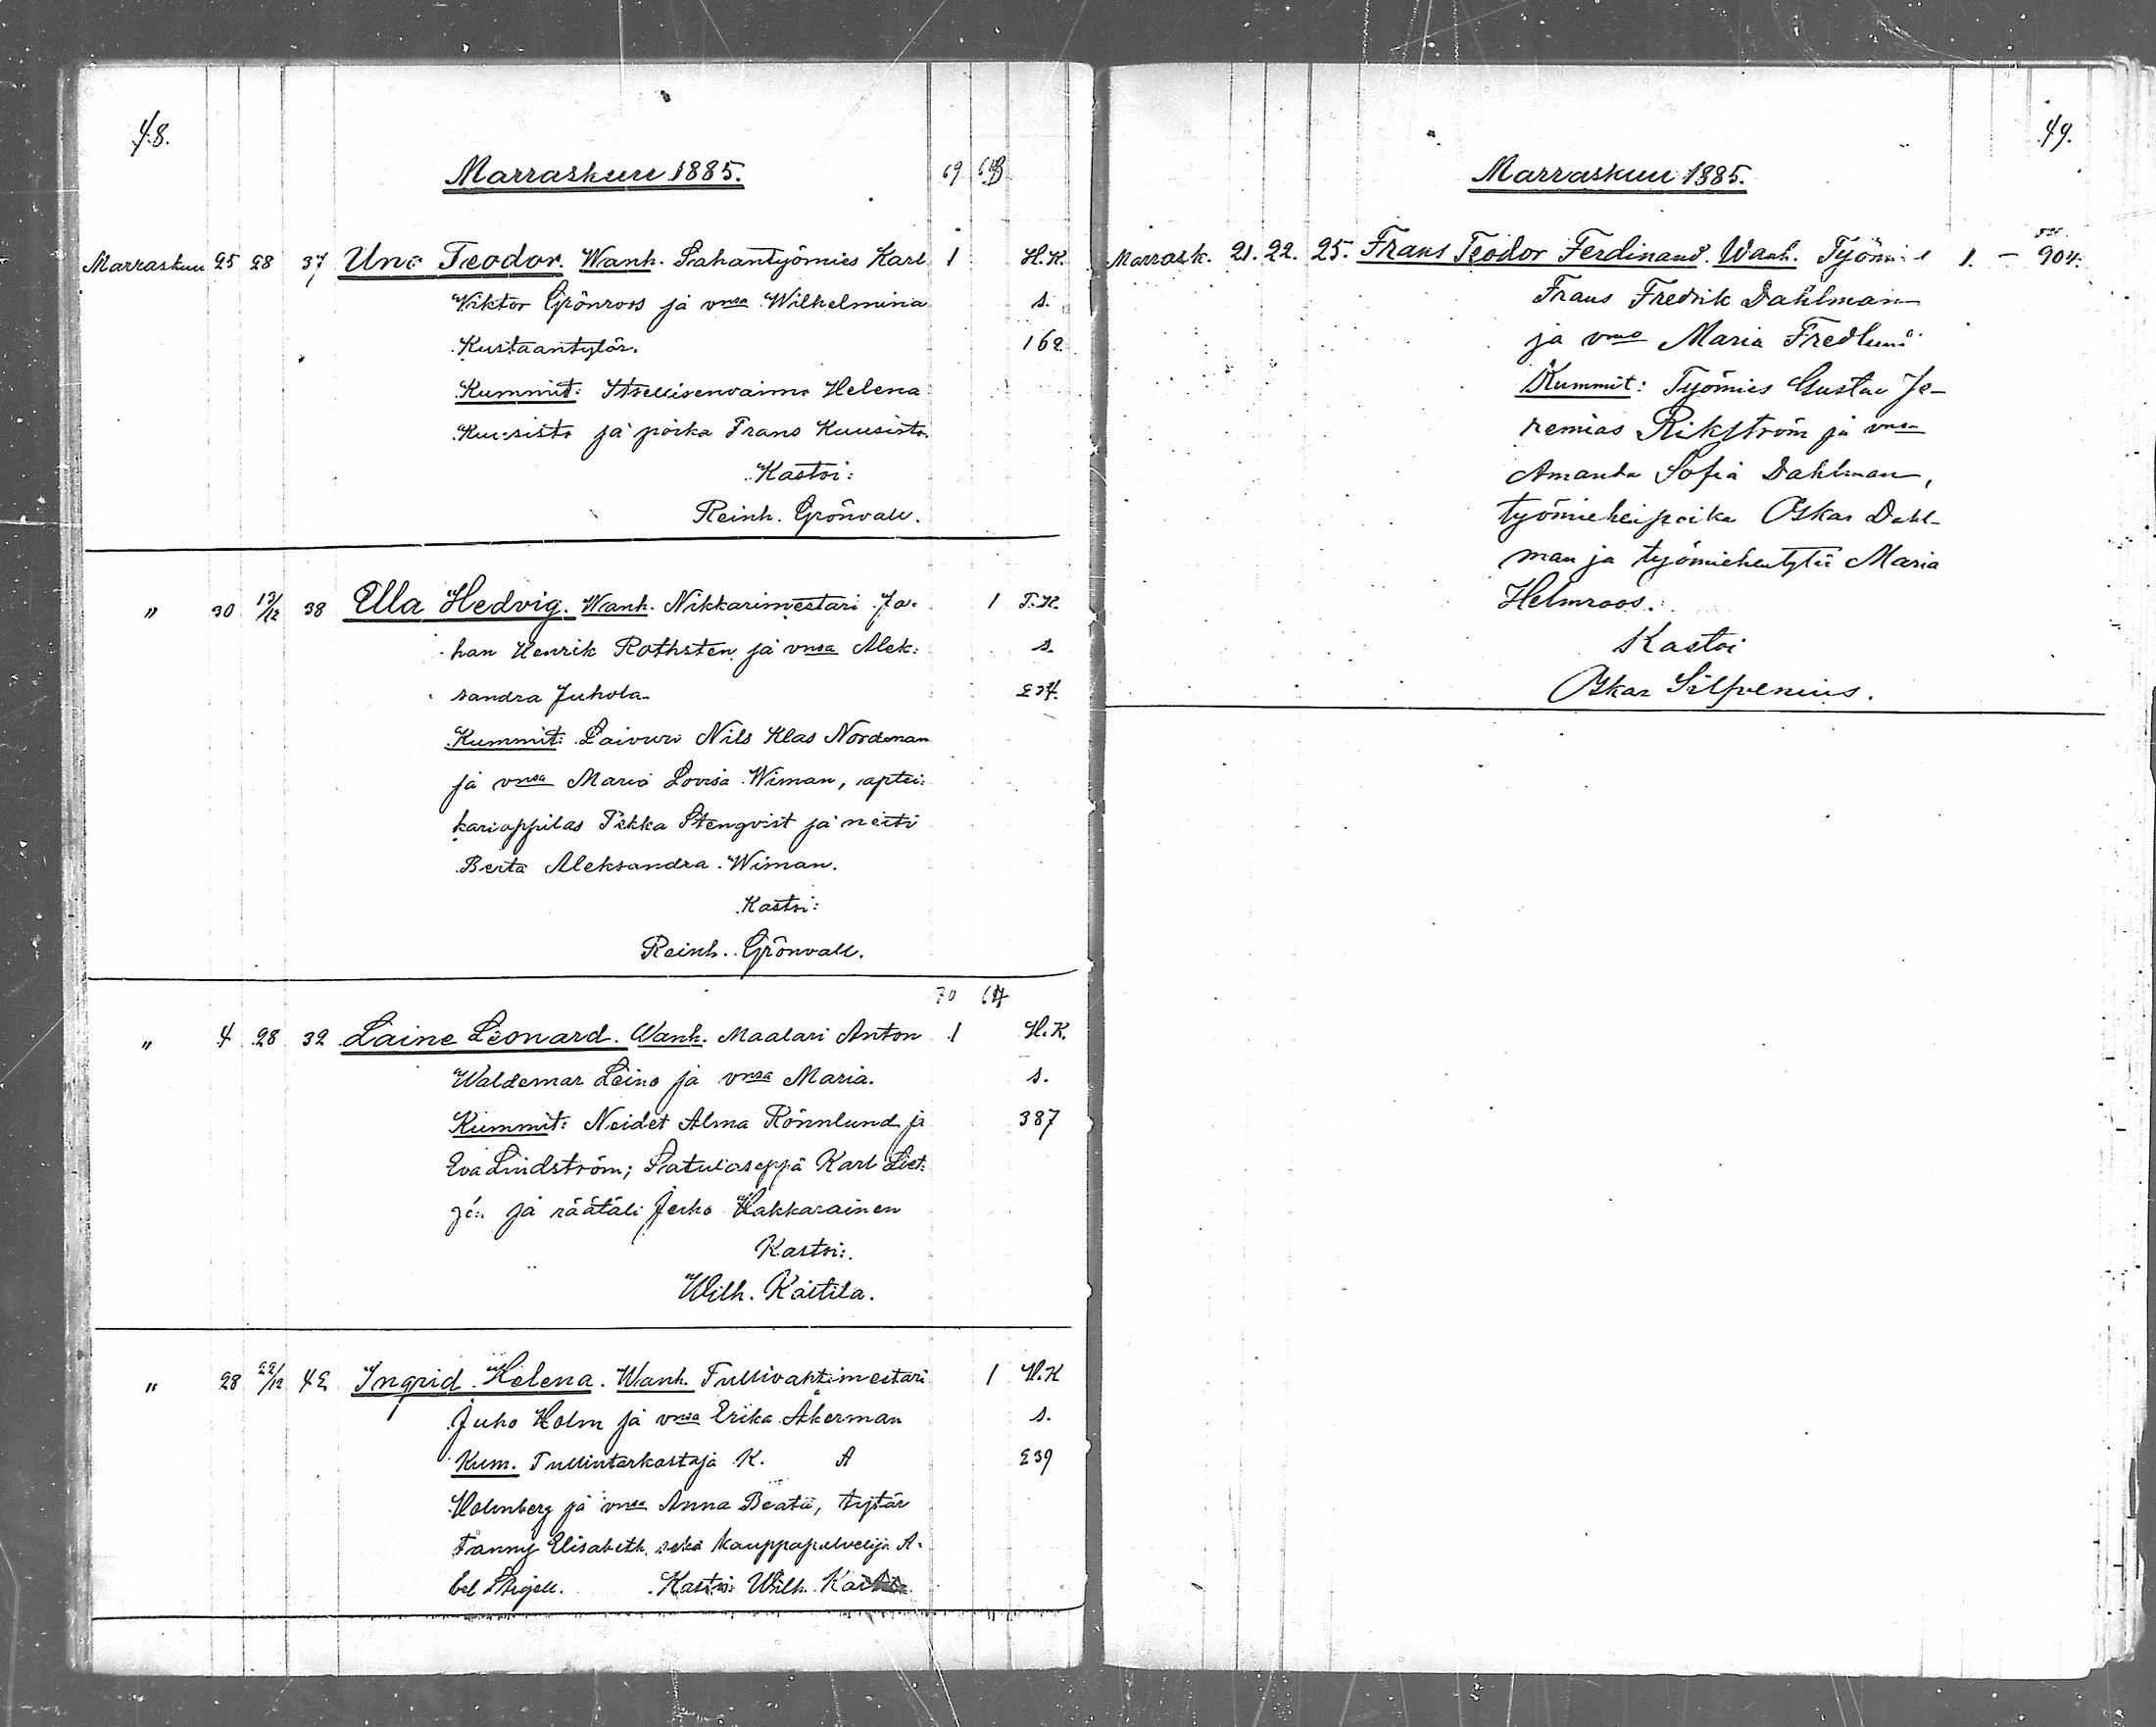 48.
Marraskuu 1885. 69
Marraskuu 25 28 37 Uno Teodor. Wanh. Sahantyömies Karl 1 H.K.
Viktor Grönroos ja vmsa Wilhelmina s.
Kustaantytär. 162
Kummit: Itsellisenvaimo Helena
Kuusisto ja poika Frans Kuusisto.
Kastoi:
Reinh. Grönvall.
" 30 13/12 38 Ella Hedvig. Wanh. Nikkarimestari Jo- 1 T.K.
han Henrik Rothsten ja vmsa Alek- s.
sandra Juhola 234.
Kummit: Laivuri Nils Klas Nordman
ja vmsa Maria Lovisa Wiman, aptei-
karioppilas Pekka Stenqvist ja neiti
Berta Aleksandra Wiman.
Kastoi:
Reinh. Grönvall.
70
" 4 28 32 Laine Leonard. Wanh. Maalari Anton 1 H.K.
Waldemar Leino ja vmsa Maria. s.
Kummit: Neidet Alma Rönnlund ja 387
Eva Lindström; Satulaseppä Karl Liet-
zén ja räätäli Juho Hakkarainen
Kastoi:
Wilh. Kaitila.
" 28 22/12 42 Ingrid Helena. Wanh. Tullivahtimestari 1 H.K
Juho Holm ja vmsa Erika Åkerman s.
Kum. Tullintarkastaja K. A 239
Holmberg ja vmsa Anna Beata, tytär
Fanny Elisabeth sekä kauppapalvelija A-
bel Stigell. Kastoi Wilh. Kaitila.
49.
Marraskuu 1885.
Marrask. 21. 22. 25. Frans Teodor Ferdinand. Wanh. Työmies 1. – 904.
Frans Fredrik Dahlman
ja vmsa Maria Fredlund
Kummit: Työmies Gustav Je-
remias Rikström ja vmsa
Amanda Sofia Dahlman,
työmiehenpoika Oskar Dahl-
man ja työmiehentytär Maria
Helmroos.
Kastoi
Oskar Silfvenius.